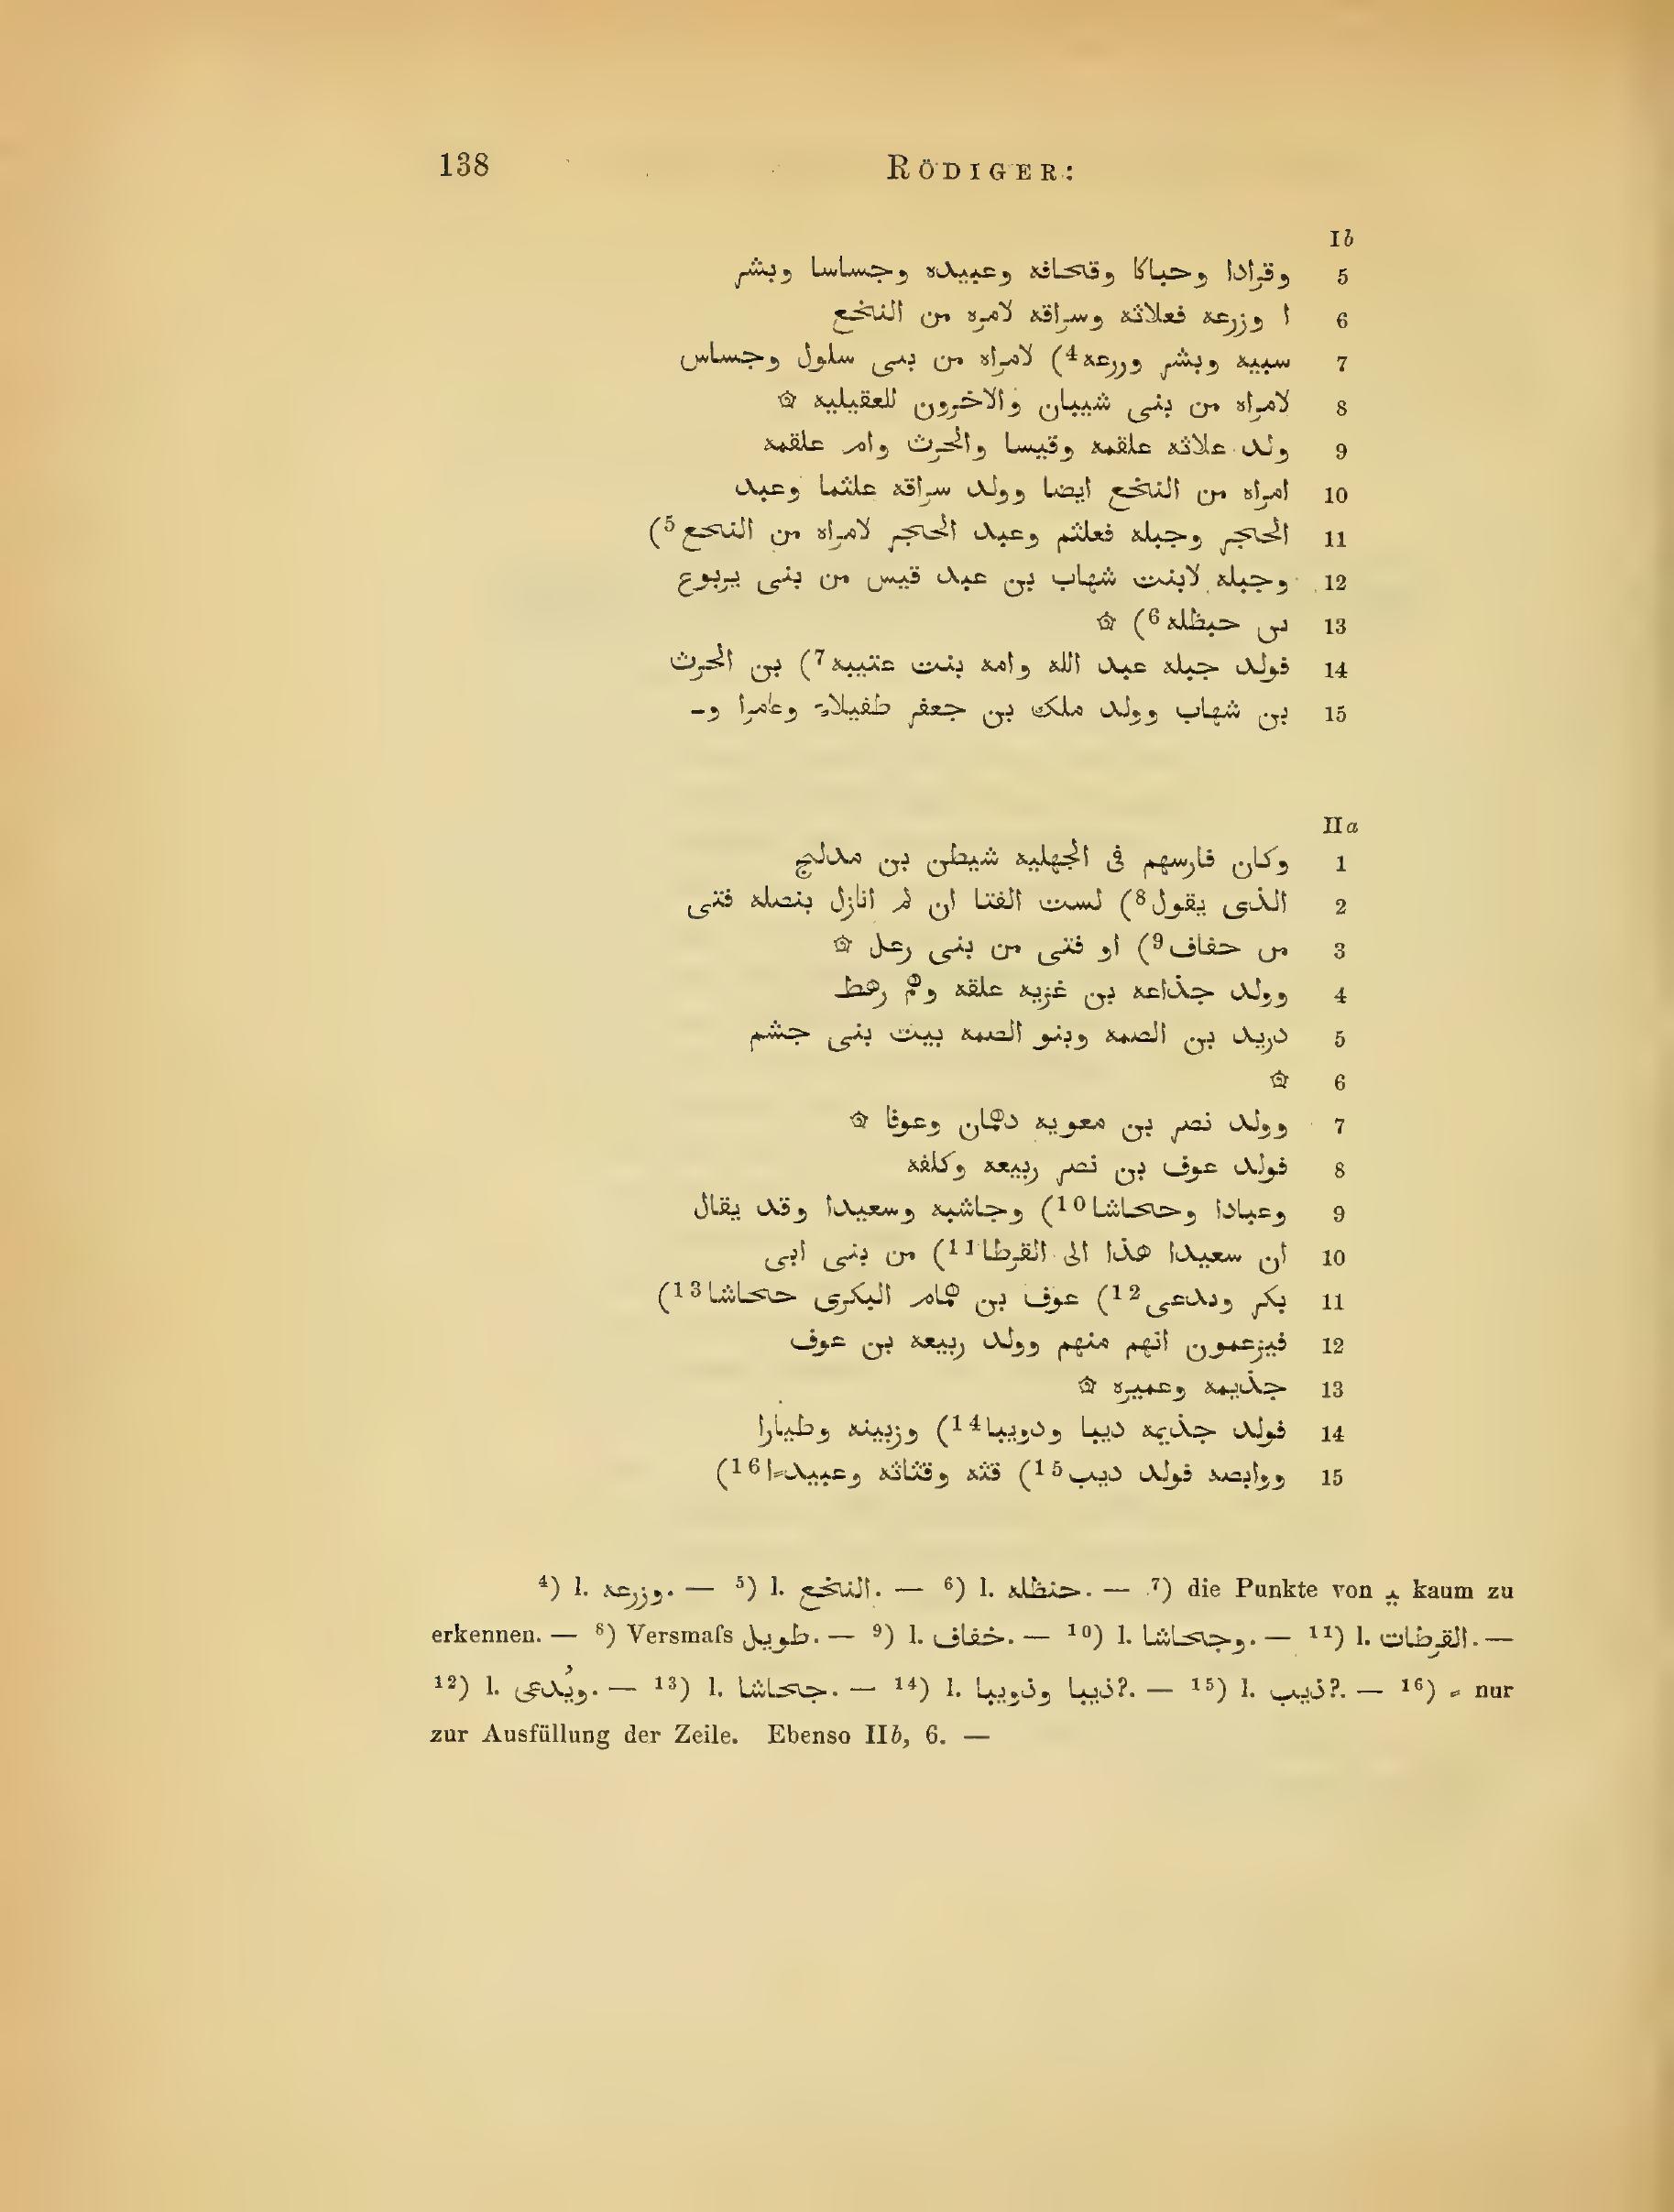 138 RÖDIGER:
Ib
5 وقرادا وحباكا وقحافه وعبيده وجساسا وبشر
6 ا وزرعه فعلاثه وسراقه لامره من النخع
7 سبيه وبشر وررعه4) لامراه من بنى سلول وجساس
8 لامراه من بنى شيبان والاخرون للعقيليه ۞
9 ولد علاثه علقمه وقيسا والحرث وام علقمه
10 امراه من النخع ايضا وولد سراقه علثما وعبد
11 الحجر وجبله فعلثم وعبد الحجر لامراه من النحع5)
12 وجبله لابنت شهاب بن عبد قيس من بنى يربوع
13 ٮں حٮظله6) ۞
14 فولد جبله عبد الله وامه بنت عتيبه7) بن الحرث
15 بن شهاب وولد ملك بن جعفر طفيلا وعامرا و-
IIa
1 وكان فارسهم فى الجهليه شيطن بن مدلج
2 الذى يقول8) لست الفتا ان لم انازل بنصله فتى
3 مں حفاف9) او فتى من بنى رعل ۞
4 وولد جذاعه بن غزيه علقه وهم رهط
5 دريد بن الصمه وبنو الصمه بيت بنى جشم
6 ۞
7 وولد نصر بن معويه دهمان وعوفا ۞
8 فولد عوف بن نصر ربيعه وكلفه
9 وعبادا وححاشا10) وجاشبه وسعيدا وقد يقال
10 ان سعيدا هذا الى القرطا11) من بنى ابى
11 بكر وٮدعى12) عوف بن همام البكرى ححاشا13)
12 فيزعمون انهم منهم وولد ربيعه بن عوف
13 جذيمه وعميره ۞
14 فولد جذيمه ديبا ودويبا14) وزبينه وطيارا
15 ووابصه فولد ديب15) قثه وقثاثه وعبيدا16)
4) l. وزرعه. — 5) l. النخع. — 6) l. حنظله. — 7) die Punkte von ـيـ kaum zu
erkennen. — 8) Versmaſs طويل. — 9) l. خفاف. — 10) l. وجحاشا. — 11) l. القرطات. —
12) l. ويُدعى. — 13) l. جحاشا. — 14) l. ذيبا وذويبا?. — 15) l. ذيب?. — 16) = nur
zur Ausfüllung der Zeile. Ebenso IIb, 6. —